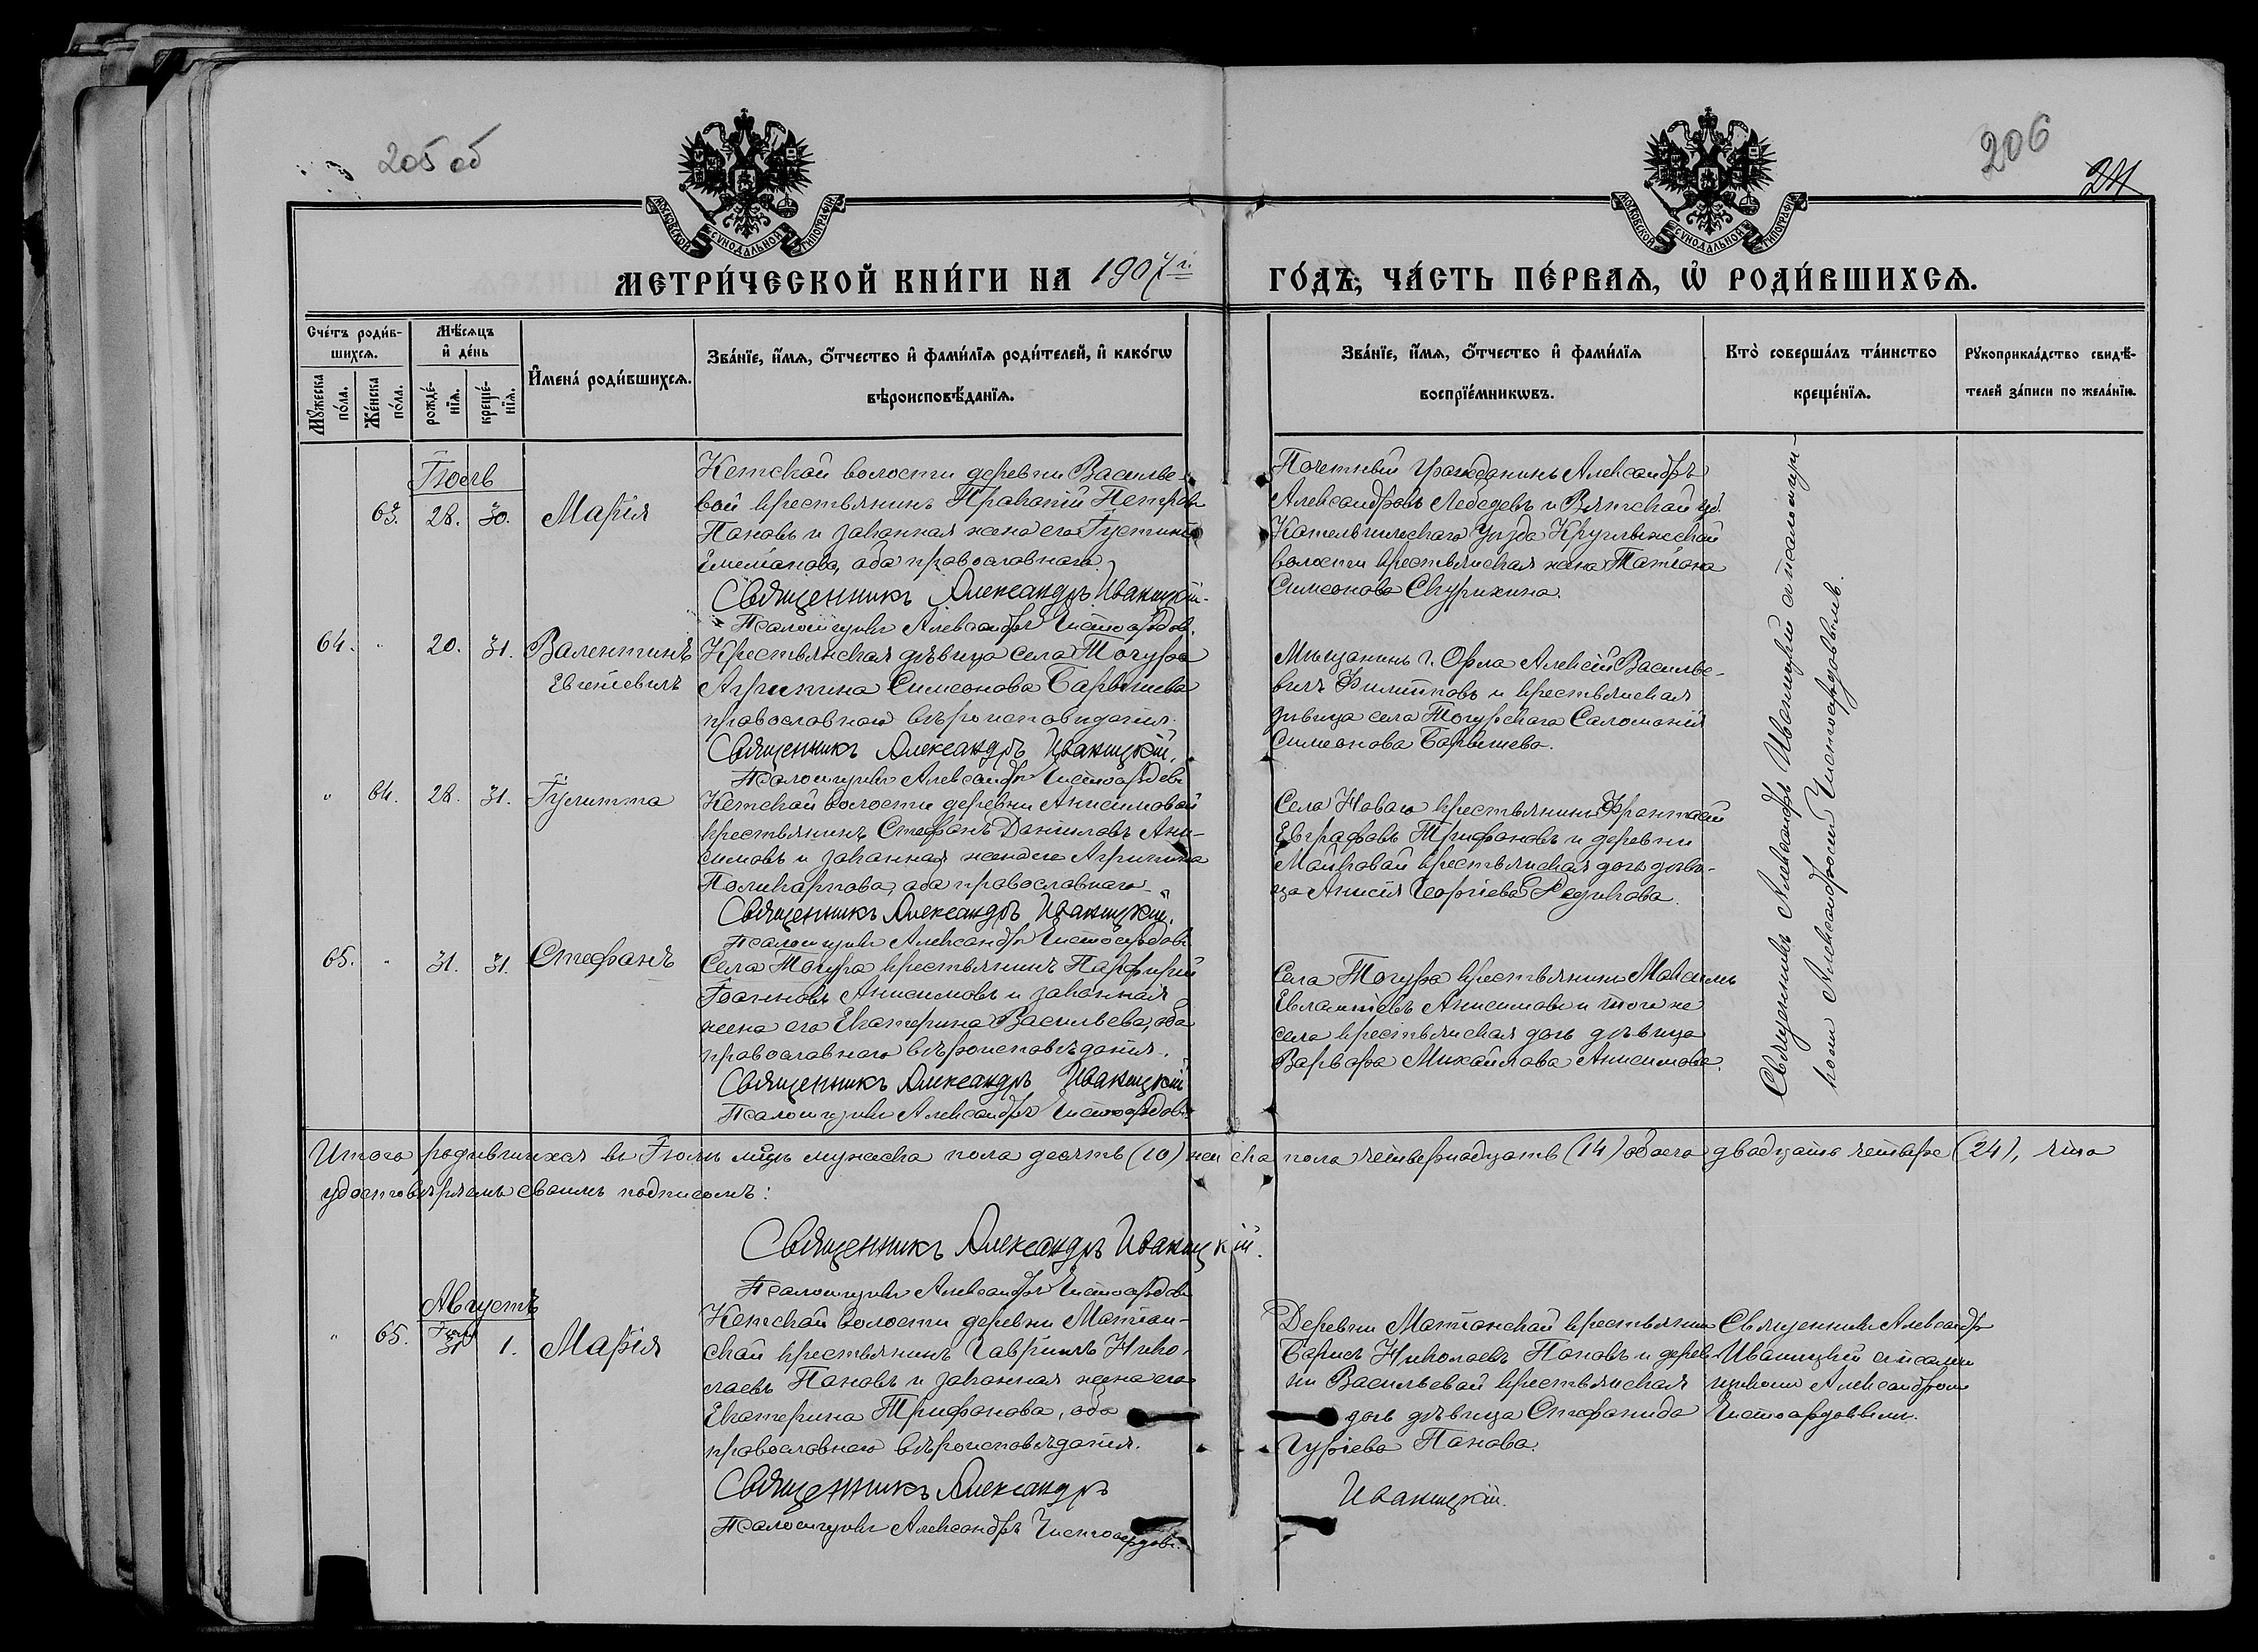 205 об
206
24
МОСКОВСКОЙ СѴНОДАЛЬНОЙ ТИПОГРАФІИ
МОСКОВСКОЙ СѴНОДАЛЬНОЙ ТИПОГРАФІИ
МЕТРИ́ЧЕСКОЙ КНИ́ГИ НА 1907 г.
ГО́ДЪ, ЧА́СТЬ ПЕ́РВАѦ, Ѡ҆ РОДИ́ВШИХСѦ.
Сче́тъ роди́в-
шихсѧ.
Мꙋ́жеска
по́ла.
Же́нска
по́ла.
Мѣ́сѧцъ
и҆ де́нь
рожде́-
нїѧ.
креще́-
нїѧ.
И҆мена̀ роди́вшихсѧ.
Зва́нїе, и҆́мѧ, ѻ҆́тчество и҆ фами́лїѧ роди́телей, и҆ како́гѡ
вѣроисповѣ́данїѧ.
Зва́нїе, и҆́мѧ, ѻ҆́тчество и҆ фами́лїѧ
воспрїе́мникѡвъ.
Кто̀ соверша́лъ та́инство
креще́нїѧ.
Рꙋкоприкла́дство свидѣ́-
телей за́писи по жела́нїю.
Іюль
63. 28. 30. Марія
Кетской волости деревни Василье-
вой крестьянинъ Прокопій Петровъ
Пановъ и законная жена его Іустина
оба православнаго.
Священникъ Александръ Иваницкій.
Псаломщикъ Александръ Чистосердовъ.
Почетный гражданинъ Александръ
Александровъ Лебедевъ и Вятской губ.
Котельническаго уѣзда Круглыжской
волости крестьянская жена Татіана
Симеонова Скурихина.
64. " 20. 31. Валентинъ
Евгеніевичъ
Крестьянская дѣвица села Тогура
Агрипина Симеонова Барышева
православнаго вѣроисповѣданія.
Священникъ Александръ Иваницкій.
Псаломщикъ Александръ Чистосердовъ
Мѣщанинъ г. Орла Алексій Василье-
вичъ Филипповъ и крестьянская
дѣвица села Тогурскаго Саломонія
Симеонова Барышева.
" 64. 28. 31. Іулитта
Кетской волости деревни Анисимовой
крестьянинъ Стефанъ Даниловъ Ани-
симовъ и законная жена его Агрипина
Поликарпова, оба православнаго.
Священникъ Александръ Иваницкій.
Псаломщикъ Александръ Чистосердовъ
Села Новаго крестьянинъ
Евграфовъ Трифоновъ и деревни
Майковой крестьянская дочь дѣви-
ца Анисія Георгіева Родикова.
65. " 31. 31. Стефанъ
Села Тогура крестьянинъ Парфирій
Іоанновъ Анисимовъ и законная
жена его Екатерина Васильева, оба
православнаго вѣроисповѣданія.
Священникъ Александръ Иваницкій
Псаломщикъ Александръ Чистосердовъ
Села Тогура крестьянинъ Максимъ
Евлампіевъ Анисимовъ и того же
села крестьянская дочь дѣвица
Варвара Михайлова Анисимова.
Священникъ Александръ Иваницкій с псаломщи-
комъ Александромъ Чистосердовымъ.
Итого родившихся въ Іюлѣ мѣцѣ мужеска пола десять (10) женска пола четырнадцать (14) обоего двадцать четыре (24), что
удостовѣряемъ своимъ подписомъ:
Священникъ Александръ Иваницкій.
Псаломщикъ Александръ Чистосердовъ
Августъ
" 65. Іюля 31 1. Марія
Кетской волости деревни Матіан-
ской крестьянинъ Гавріилъ Нико-
лаевъ Пановъ и законная жена его
Екатерина Трифонова, оба
православнаго вѣроисповѣданія.
Священникъ Александръ
Иваницкій.
Псаломщикъ Александръ Чистосердовъ.
Деревни Матіанской крестьянинъ
Борисъ Николаевъ Пановъ и дерев-
ни Васильевой крестьянская
дочь дѣвица Стефанида
Гуріева Панова.
Священникъ Александръ
Иваницкій с псалом
щикомъ Александромъ
Чистосердовымъ.